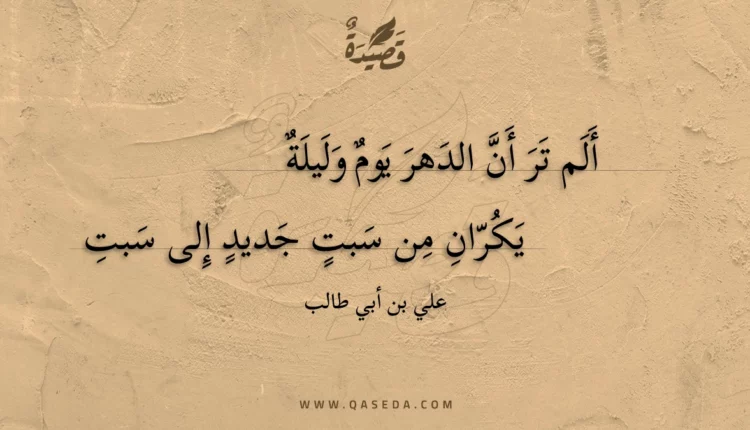 قَصِيدَةٌ
أَلَم تَرَ أَنَّ الدَهرَ يَومٌ وَلَيلَةٌ
يَكُرّانِ مِن سَبتٍ جَديدٍ إِلى سَبتِ
علي بن أبي طالب
WWW.QASEDA.COM